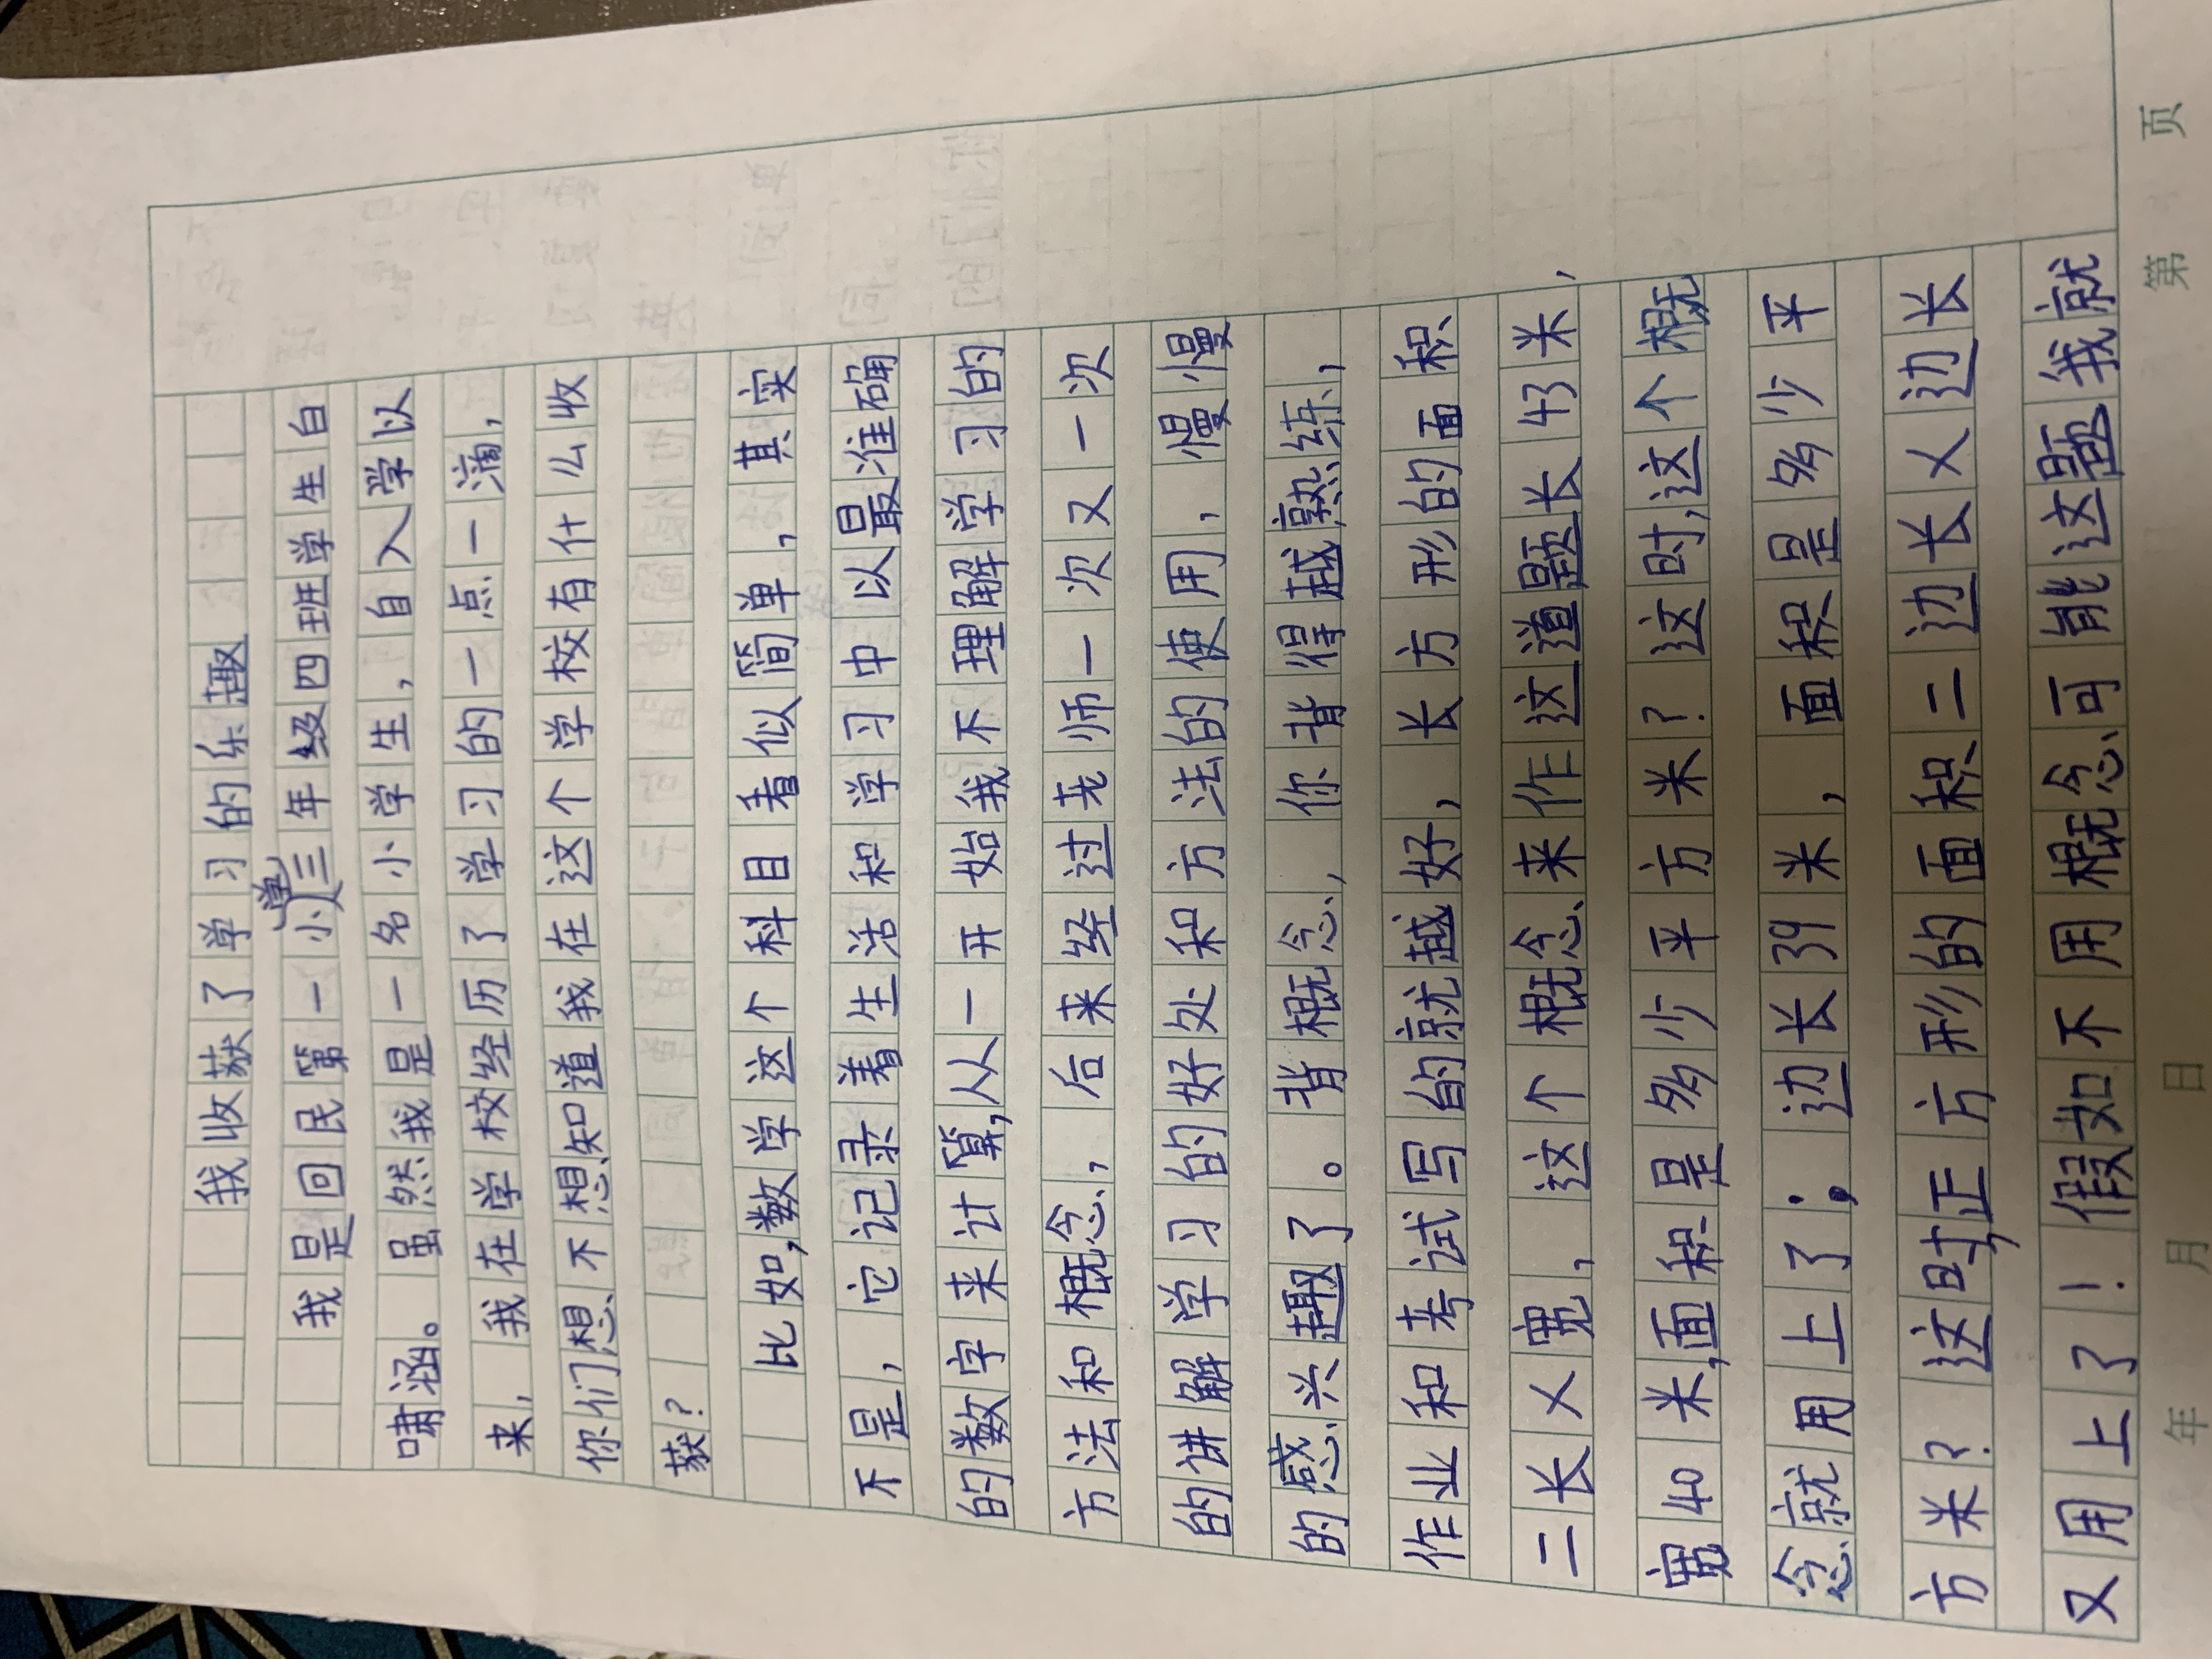 我收获了学习的乐趣
我是回民第一小学三年级四班学生白
啸涵。虽然我是一名小学生，自入学以
来，我在学校经历了学习的一点一滴，
你们想、不想知道我在这个学校有什么收
获？
比如，数学这个科目看似简单，其实
不是，它记录着生活和学习中以最准确
的数字来计算，从一开始我不理解学习的
方法和概念，后来经过老师一次又一次
的讲解学习的好处和方法的使用，慢慢
的感兴趣了。背概念，你背得越熟练，
作业和考试写的就越好，长方形的面积
=长×宽，这个概念来作这道题长43米，
宽40米，面积是多少平方米？这时，这个概
念就用上了；边长39米，面积是多少平
方米？这时，正方形的面积=边长×边长
又用上了！假如不用概念可能这题我就
年 月 日 第 页